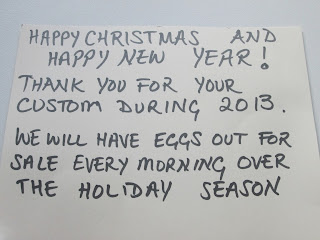 HAPPY CHRISTMAS AND
HAPPY NEW YEAR!
THANK YOU FOR YOUR
CUSTOM DURING 2013.
WE WILL HAVE EGGS OUT FOR
SALE EVERY MORNING OVER
THE HOLIDAY SEASON